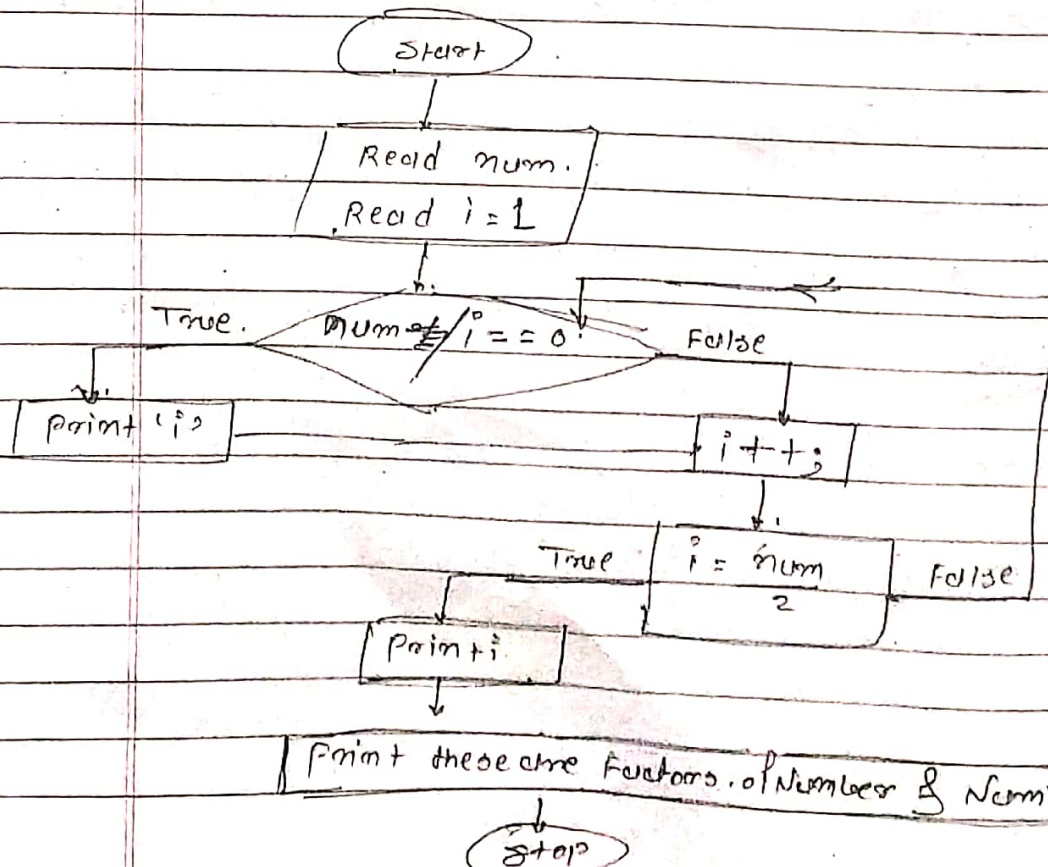 Start
Read num.
Read i = 1
True.
num / i = = 0
False
Print 'i'
i + + ;
True
i = num
2
False
Print i
Print these are Factors. of Number & Num
Stop